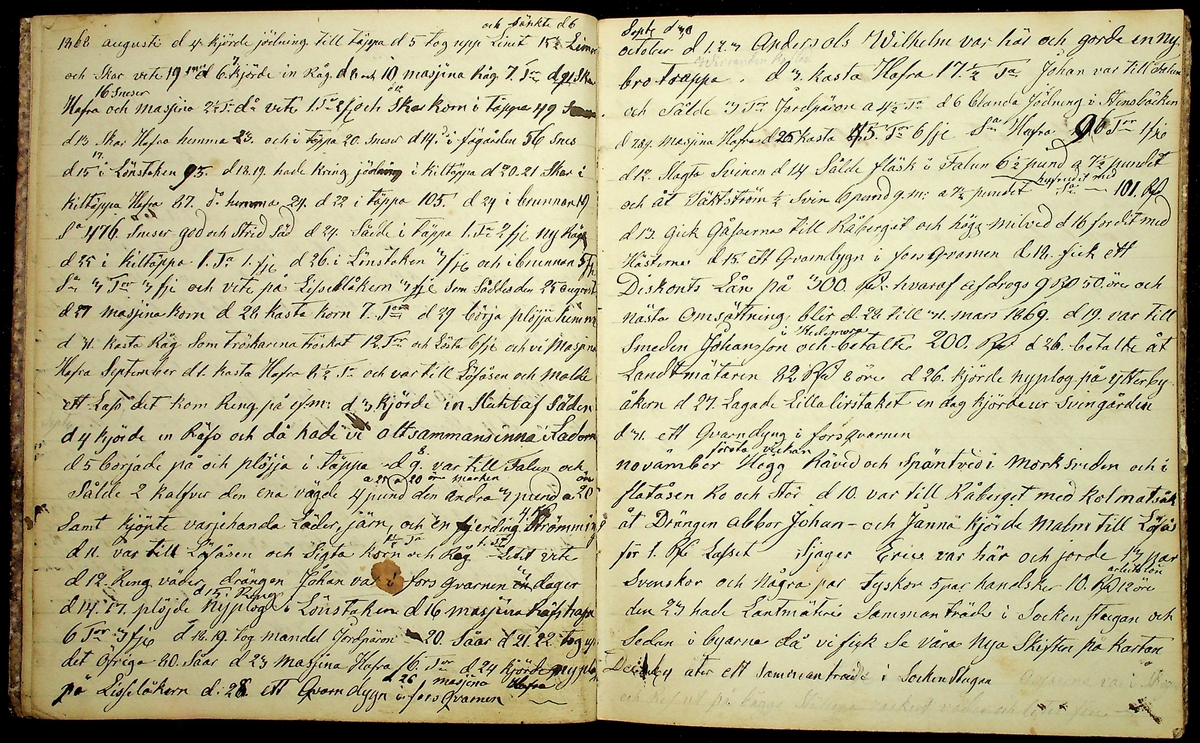 och säckte d 6
1868 augusti d 4 kjörde jödning till täppa d 5 tog upp Linet 15½
och Skar vete 19 d 6 kjörde in Råg d 8 och 10 masjina Råg 7. Tr
16 Sneser
Hafra och masjina 2½ Tr då vete 1 Tr 2 fj och Skar korn i täppa 49
d 13 Skar Hafra hemma 23. och i täppa 20. Sneser d 14 i fägården 56 Snes
d 15 i Lönstaken 93. d 18.19. hade kring jödning i Kiltäppa d 20.21 Skar i
Kiltäppa Hafra 87. do hemma 24. d 22 i täppa 105. d 24 i brunnan 19
Sa 476 Sneser god och Strid Säd d 24. Sådde i Täppa 1. Tr 2 fj ny Råg
d 25 i Kiltäppa 1. Tr 1. fj d 26. i Lönstaken 3 fj och i brunnan 5 fj
Sa 3 Tr 3 fj och vete på Lisselåkern 3 fj Som Såddes den 25 august
d 27 masjina korn d 28 kasta korn 7. Tr d 29 börja plöjja hemma
d 31. kasta Råg Som tröskarina tröskat 12 Tr och Löste 6 fj och vi Masjina
Hafra September d 1. kasta Hafra 8½ Tr och var till Löfåsen och Malde
ett Lass det kom Reng på e.m: d 3 kjörde in Slutet af Säden
d 4 kjörde in Räfso och då hade vi alltsammans inna i Ladorn
d 5 började på och plöjja i Täppa d 9. 8. var till Falun och
a 25 a 20 öre marken
Sålde 2 kalfver den ena vägde 4 pund den andra 3 pund a 20 öre
Samt Kjöpte varjehanda Läder, järn, och en fjerding Strömming
d 11. var till Löfåsen och Sigta Korn och Råg vete
d 12. Reng väder, drängen Johan var i fors Qvarnen dager
d 15 i Reng
d 14. 17. plöjde Nyplog i Lönstaken d 16 masjina
6 Tr 3 fj d 18.19. tog mandel Jordpäron 20. Såar d 21. 22 tog
det Öfriga 60. Såar d 23 Masjina Hafra 16. Tr d 24 kjörde nyplog
d 26 masjina Hafra
på Lisselåkern d: 28 ett Qvarn dygn i fors Qvarnen
Septe d 30
October d 1. 2. 3 Anders ols Wilhelm var här och gorde en ny
bro trappa. d 3. kasta Hafra 17.½ Tr Johan var till
och Sålde 3 Tr Jordpäron a 4½ d 6 blanda Jödning i Stensbäcken
d 28.9. masjina Hafra d 25 Kasta 45. Tr 6 fj Sa Hafra 96 Tr 1 fj
d 12. Slagta Svinen d 14 Sålde fläsk i Falun 6½ pund a 7½ pundet
hufvudet med
och åt Täktström ½ Svin 6 pund 9. m: a 7½ pundet Sa 101 Rd
d 13. Gick Gåfarna till Råberget och högg milved d 16 for dit med
Hästerna d 15. ett Qvarndygn i fors Qvarnen d 14. fick ett
Diskonts Lån på 300 Rd. hvaraf afdrogs 9 Rd 50. öre och
nästa Omsättning blir d 28 till 31. mars 1869. d 19. var till
i Hedemora
Smeden Johansson och betalte 200. Rd d 26. betalte åt
Landtmätaren 32 Rd 8 öre d 26. kjörde nyplog på ytterby-
åkern d 27. Lagade Lilla lirstaket en dag kjörde ur Svingården
d 31. ett Qvarndygn i fors qvarnen
första veckan
novämber Hogg Råved och Späntved i Morksveden och i
flatåsen Ro och Stör d 10. var till Råberget med kolmatsäck
åt Drängen abbor Johan - och Janne kjörde Malm till Löfås
för 1. Rd Lasset Sjäger Erics var här och jorde 13 par
arbetslön
Svenskor och Några par Tyskor 5 par handsker 10. Rd 12 öre
den 23 hade Lantmätrie Sammanträde i Socken stugan och
Sedan i byarna då vi fick Se våra Nya Skiften på Kartan
Decemby åter ett Sammanträde i Socken Stugan